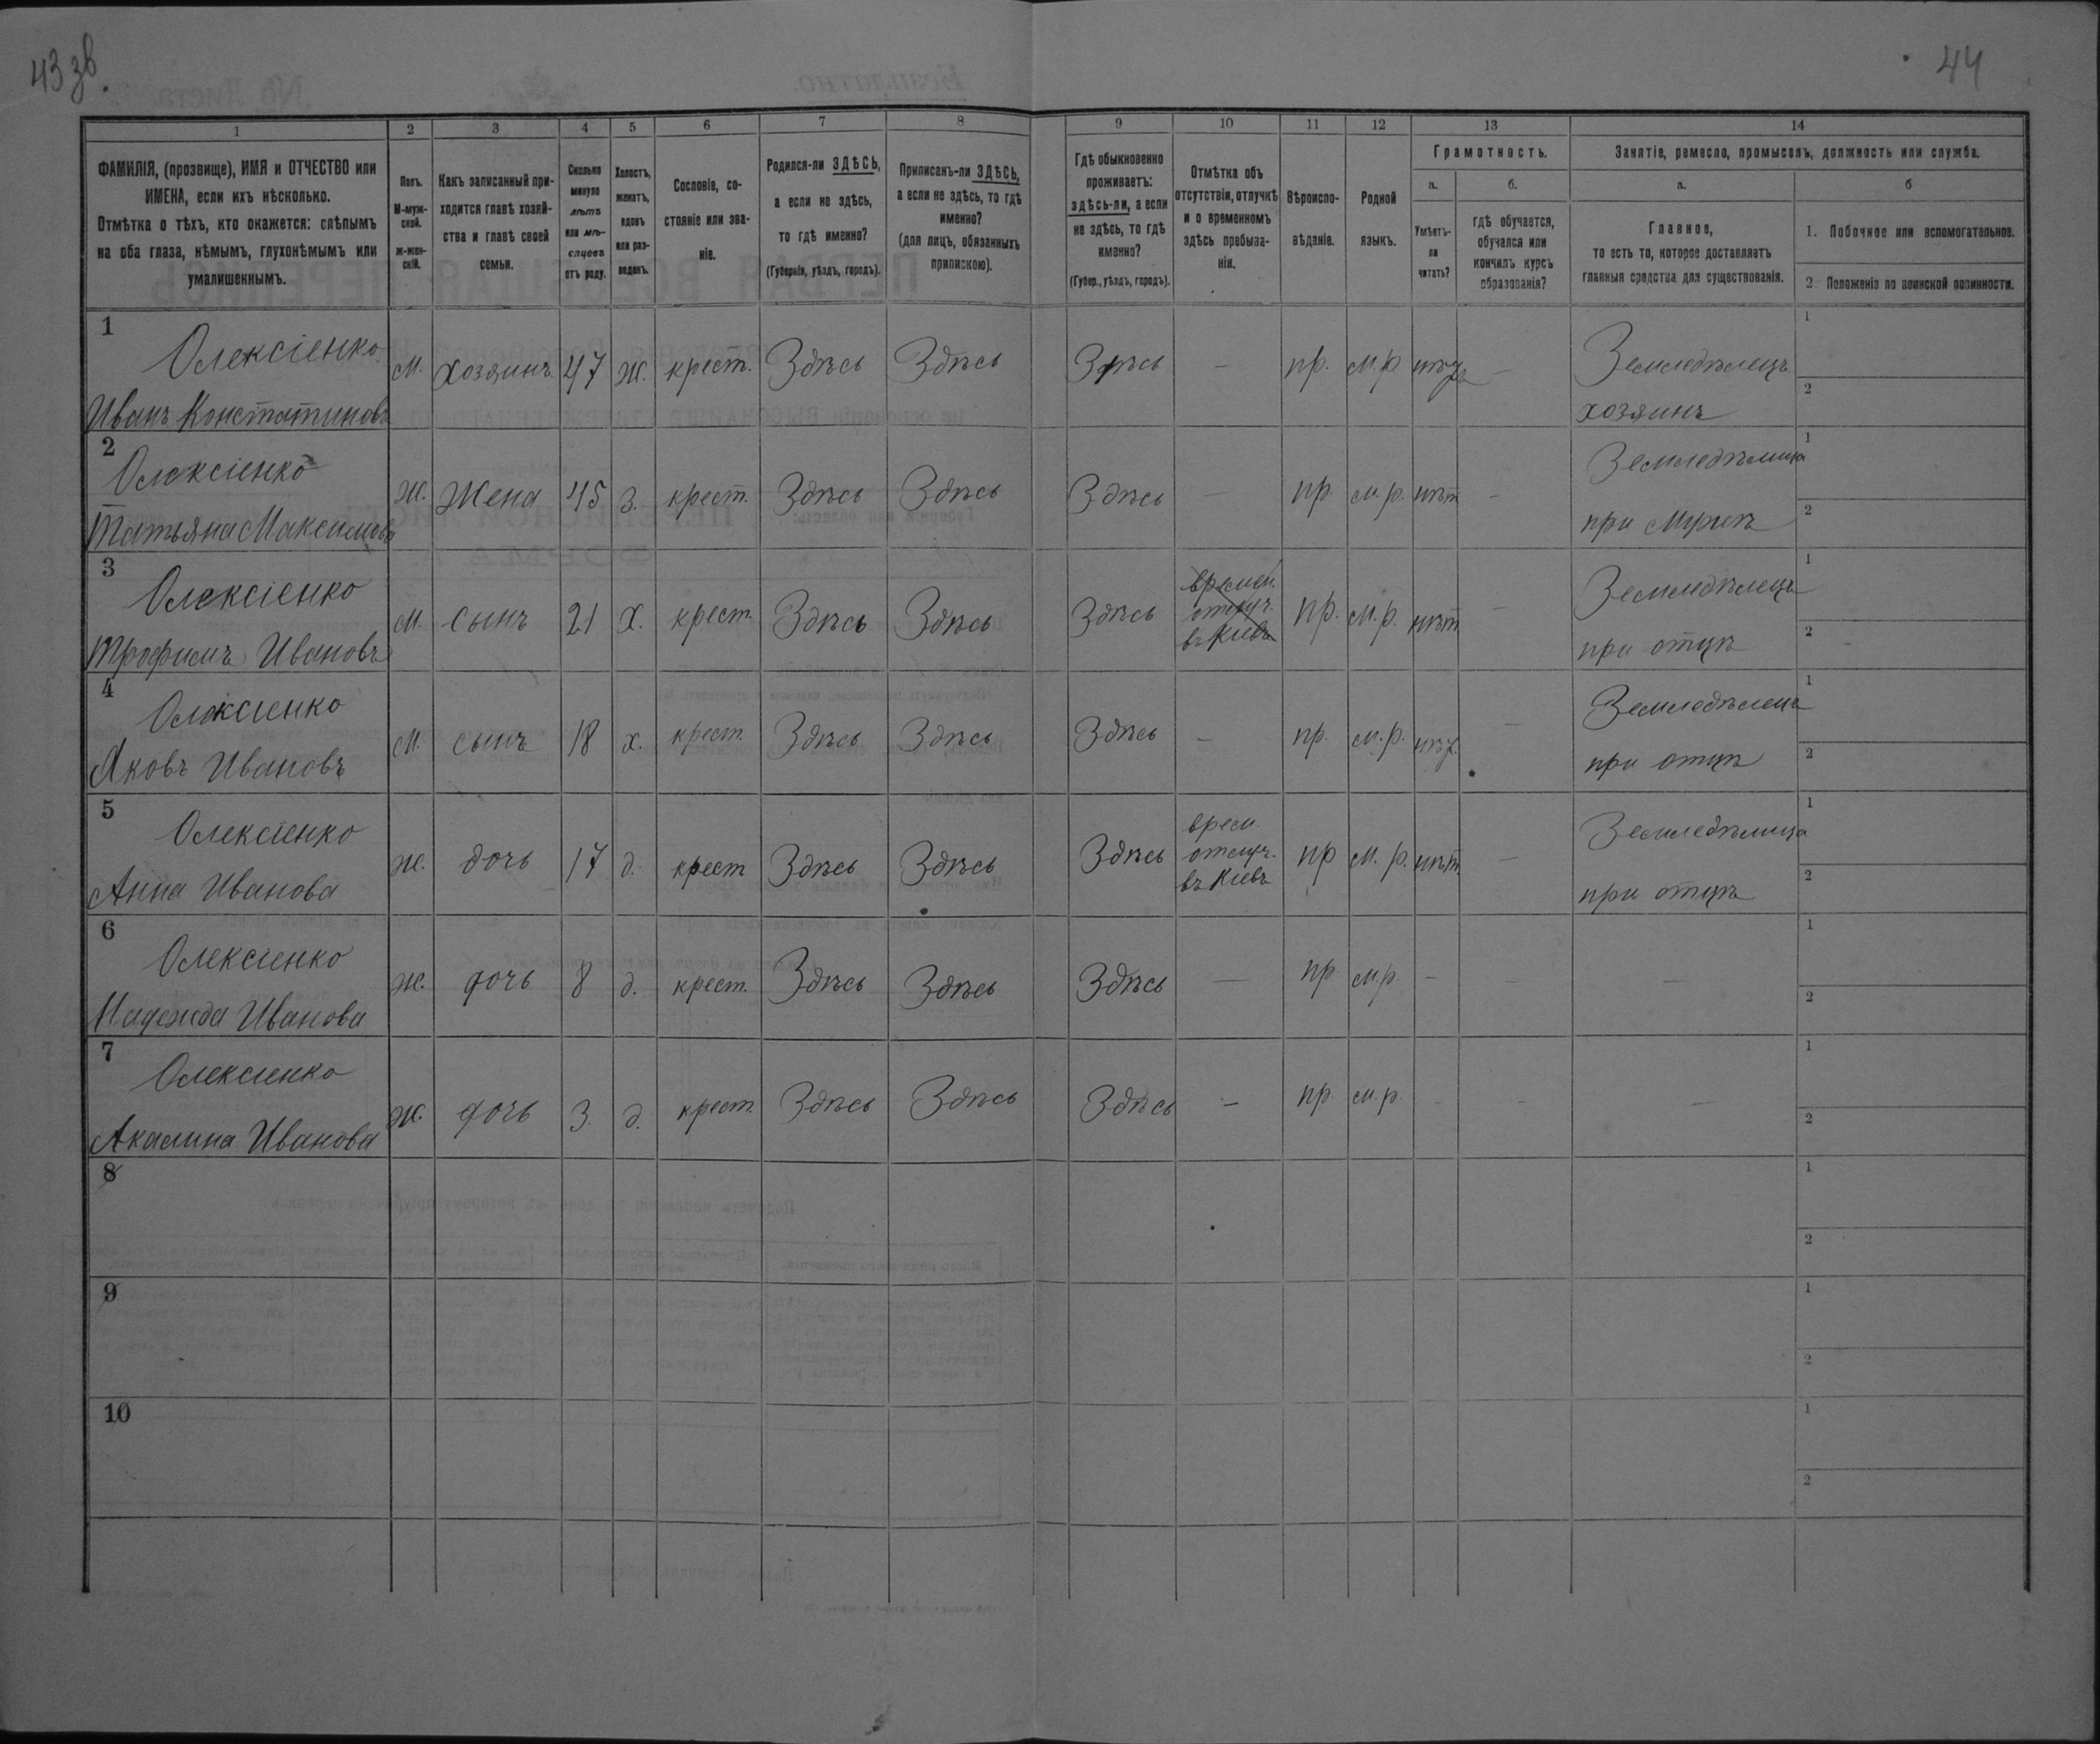 43 зв.
44
1 2 3 4 5 6 7 8 9 10 11 12 13 14
ФАМИЛІЯ, (прозвище), ИМЯ и ОТЧЕСТВО или
ИМЕНА, если ихъ нѣсколько.
Отмѣтка о тѣхъ, кто окажется: слѣпымъ
на оба глаза, нѣмымъ, глухонѣмымъ или
умалишеннымъ.
Полъ.
М-муж-
ской.
ж-жен-
скій.
Какъ записанный при-
ходится главѣ хозяй-
ства и главѣ своей
семьи.
Сколько
минуло
лѣтъ
или мѣ-
сяцевъ
отъ роду.
Холостъ,
женатъ,
вдовъ
или раз-
веденъ.
Сословіе, со-
стояніе или зва-
ніе.
Родился-ли ЗДѢСЬ,
а если не здѣсь,
то гдѣ именно?
(Губернія, уѣздъ, городъ).
Приписанъ-ли ЗДѢСЬ,
а если не здѣсь, то гдѣ
именно?
(для лицъ, обязанныхъ
припискою).
Гдѣ обыкновенно
проживаетъ:
здѣсь-ли, а если
не здѣсь, то гдѣ
именно?
(Губер., уѣздъ, городъ).
Отмѣтка объ
отсутствіи, отлучкѣ
и о временномъ
здѣсь пребыва-
ніи.
Вѣроиспо-
вѣданіе.
Родной
языкъ.
Грамотность.
а.
Умѣетъ-
ли
читать?
б.
гдѣ обучается,
обучался или
кончилъ курсъ
образованія?
Занятіе, ремесло, промыселъ, должность или служба.
а.
Главное,
то есть то, которое доставляетъ
главныя средства для существованія.
б
1. Побочное или вспомогательное.
2 Положеніе по воинской повинности.
1
Олексіенко
Иванъ Констатиновъ
м. хозяинъ 47 ж. крест. Здѣсь Здѣсь Здѣсь - пр. м.р. нѣт -
Земледѣлецъ
хозяинъ
1
2
2
Олексіенко
Татьяна Максимова
ж. жена 45 з. крест. Здѣсь Здѣсь Здѣсь - пр. м.р. нѣт -
Земледѣлица
при мужѣ
1
2
3
Олексіенко
Трофимъ Ивановъ
м. сынъ 21 х. крест. Здѣсь Здѣсь Здѣсь
времен.
отлуч.
въ Кіевъ
пр. м.р. нѣт -
Земледѣлецъ
при отцѣ
1
2
4
Олексіенко
Яковъ Ивановъ
м. сынъ 18 х. крест. Здѣсь Здѣсь Здѣсь - пр. м.р. нѣт -
Земледѣлецъ
при отцѣ
1
2
5
Олексіенко
Анна Иванова
ж. дочь 17 д. крест Здѣсь Здѣсь Здѣсь
врем.
отлуч.
въ Кіевъ
пр м.р. нѣт -
Земледѣлица
при отцѣ
1
2
6
Олексіенко
Надежда Иванова
ж. дочь 8 д. крест. Здѣсь Здѣсь Здѣсь - пр м.р. - - -
1
2
7
Олексіенко
Акилина Иванова
ж. дочь 3. д. крест. Здѣсь Здѣсь Здѣсь - пр. м.р. - - -
1
2
8
1
2
9
1
2
10
1
2